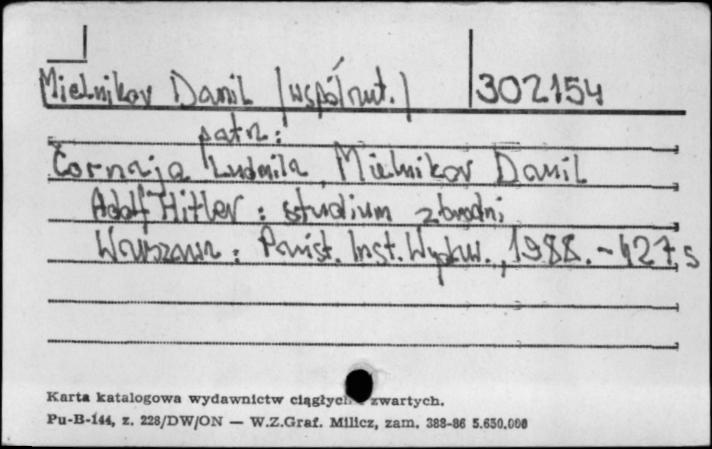 Mielnikov Danil (współaut.) 302154
patrz:
Čornaja Ludmila, Mielnikov Danil
Adolf Hitler : studium zbrodni
Warszawa : Państ. Inst. Wydaw., 1988. - 427 s
Karta katalogowa wydawnictw ciągłych i zwartych.
Pu-B-144, z. 228/DW/ON — W.Z.Graf. Milicz, zam. 388-86 5.650.000